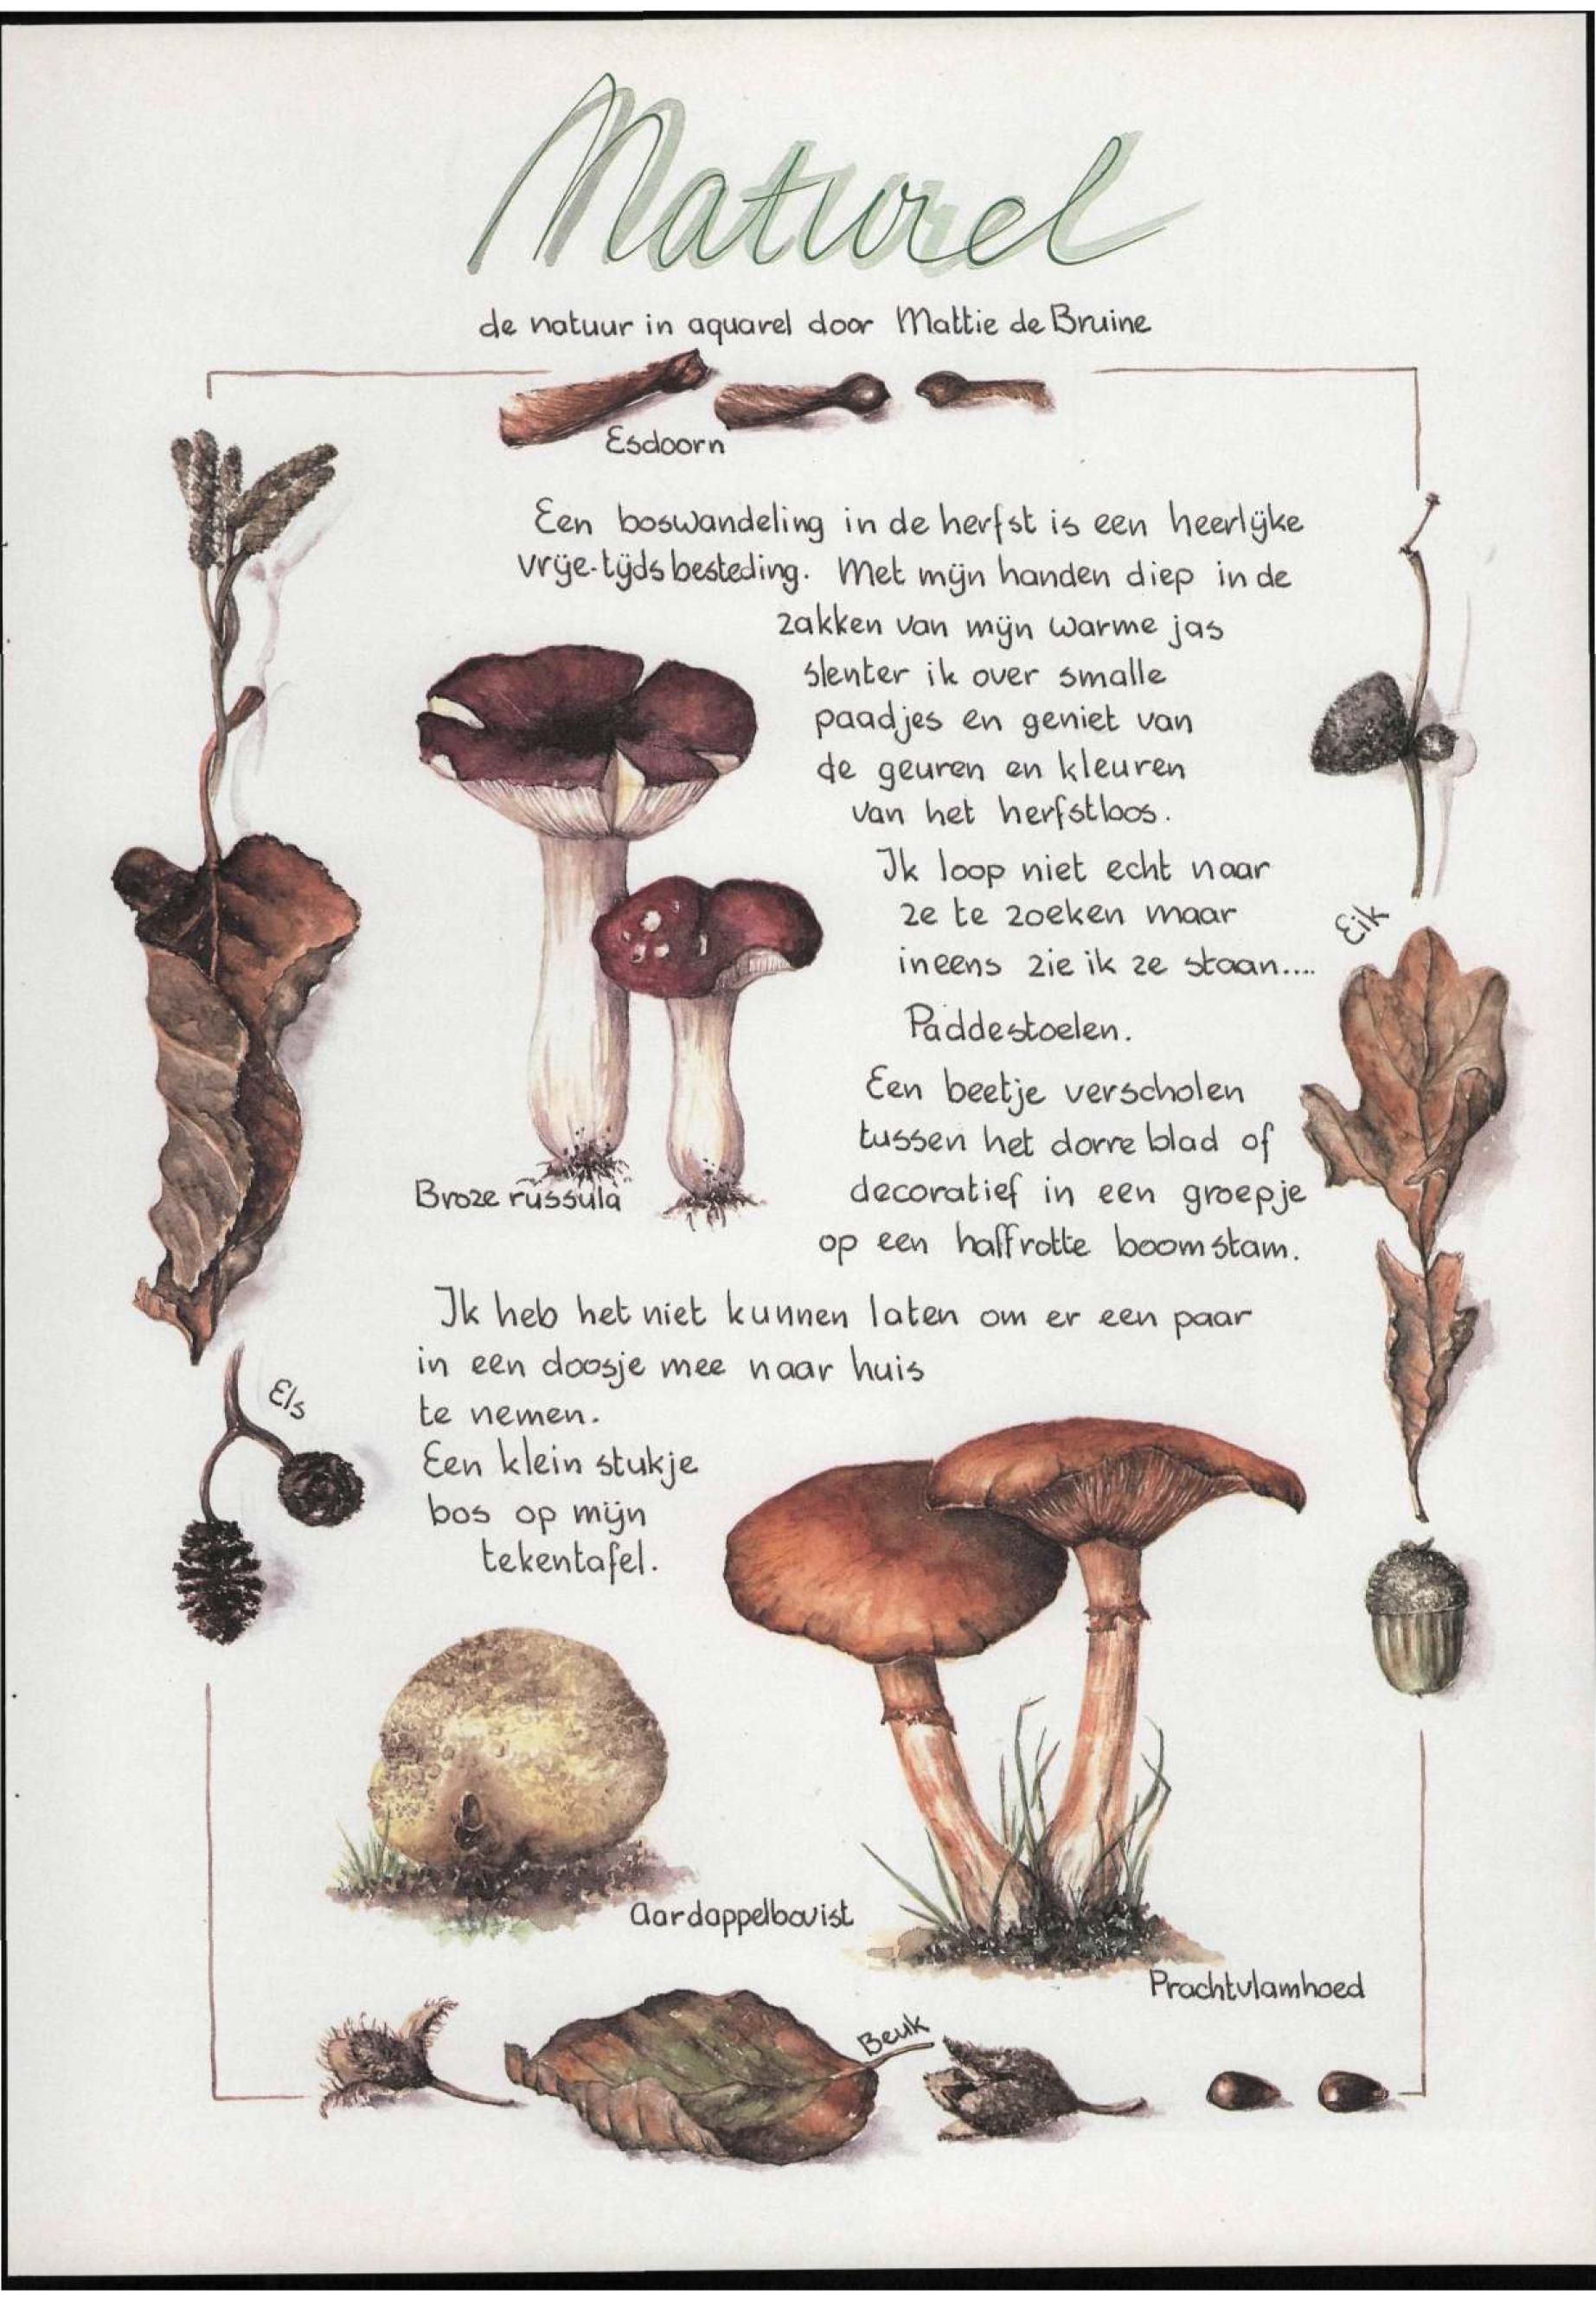 Naturel
de natuur in aquarel door Mattie de Bruine
Esdoorn
Een boswandeling in de herfst is een heerlijke
vrije-tijdsbesteding. Met mijn handen diep in de
zakken van mijn warme jas
slenter ik over smalle
paadjes en geniet van
de geuren en kleuren
van het herfstloos.
Ik loop niet echt naar
ze te zoeken maar
ineens zie ik ze staan....
Paddestoelen.
Een beetje verscholen
tussen het dorre blad of
decoratief in een groepje
op een halfrotte boomstam.
Eik
Broze russula
Ik heb het niet kunnen laten om er een paar
in een doosje mee naar huis
te nemen.
Een klein stukje
bos op mijn
tekentafel.
Els
Aardappelbovist
Prachtvlamhoed
Beuk